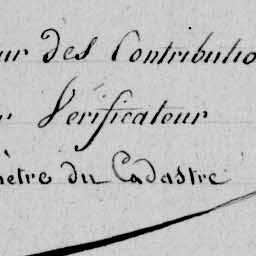 ur des Contributio
r Vérificateur
mètre du Cadastre